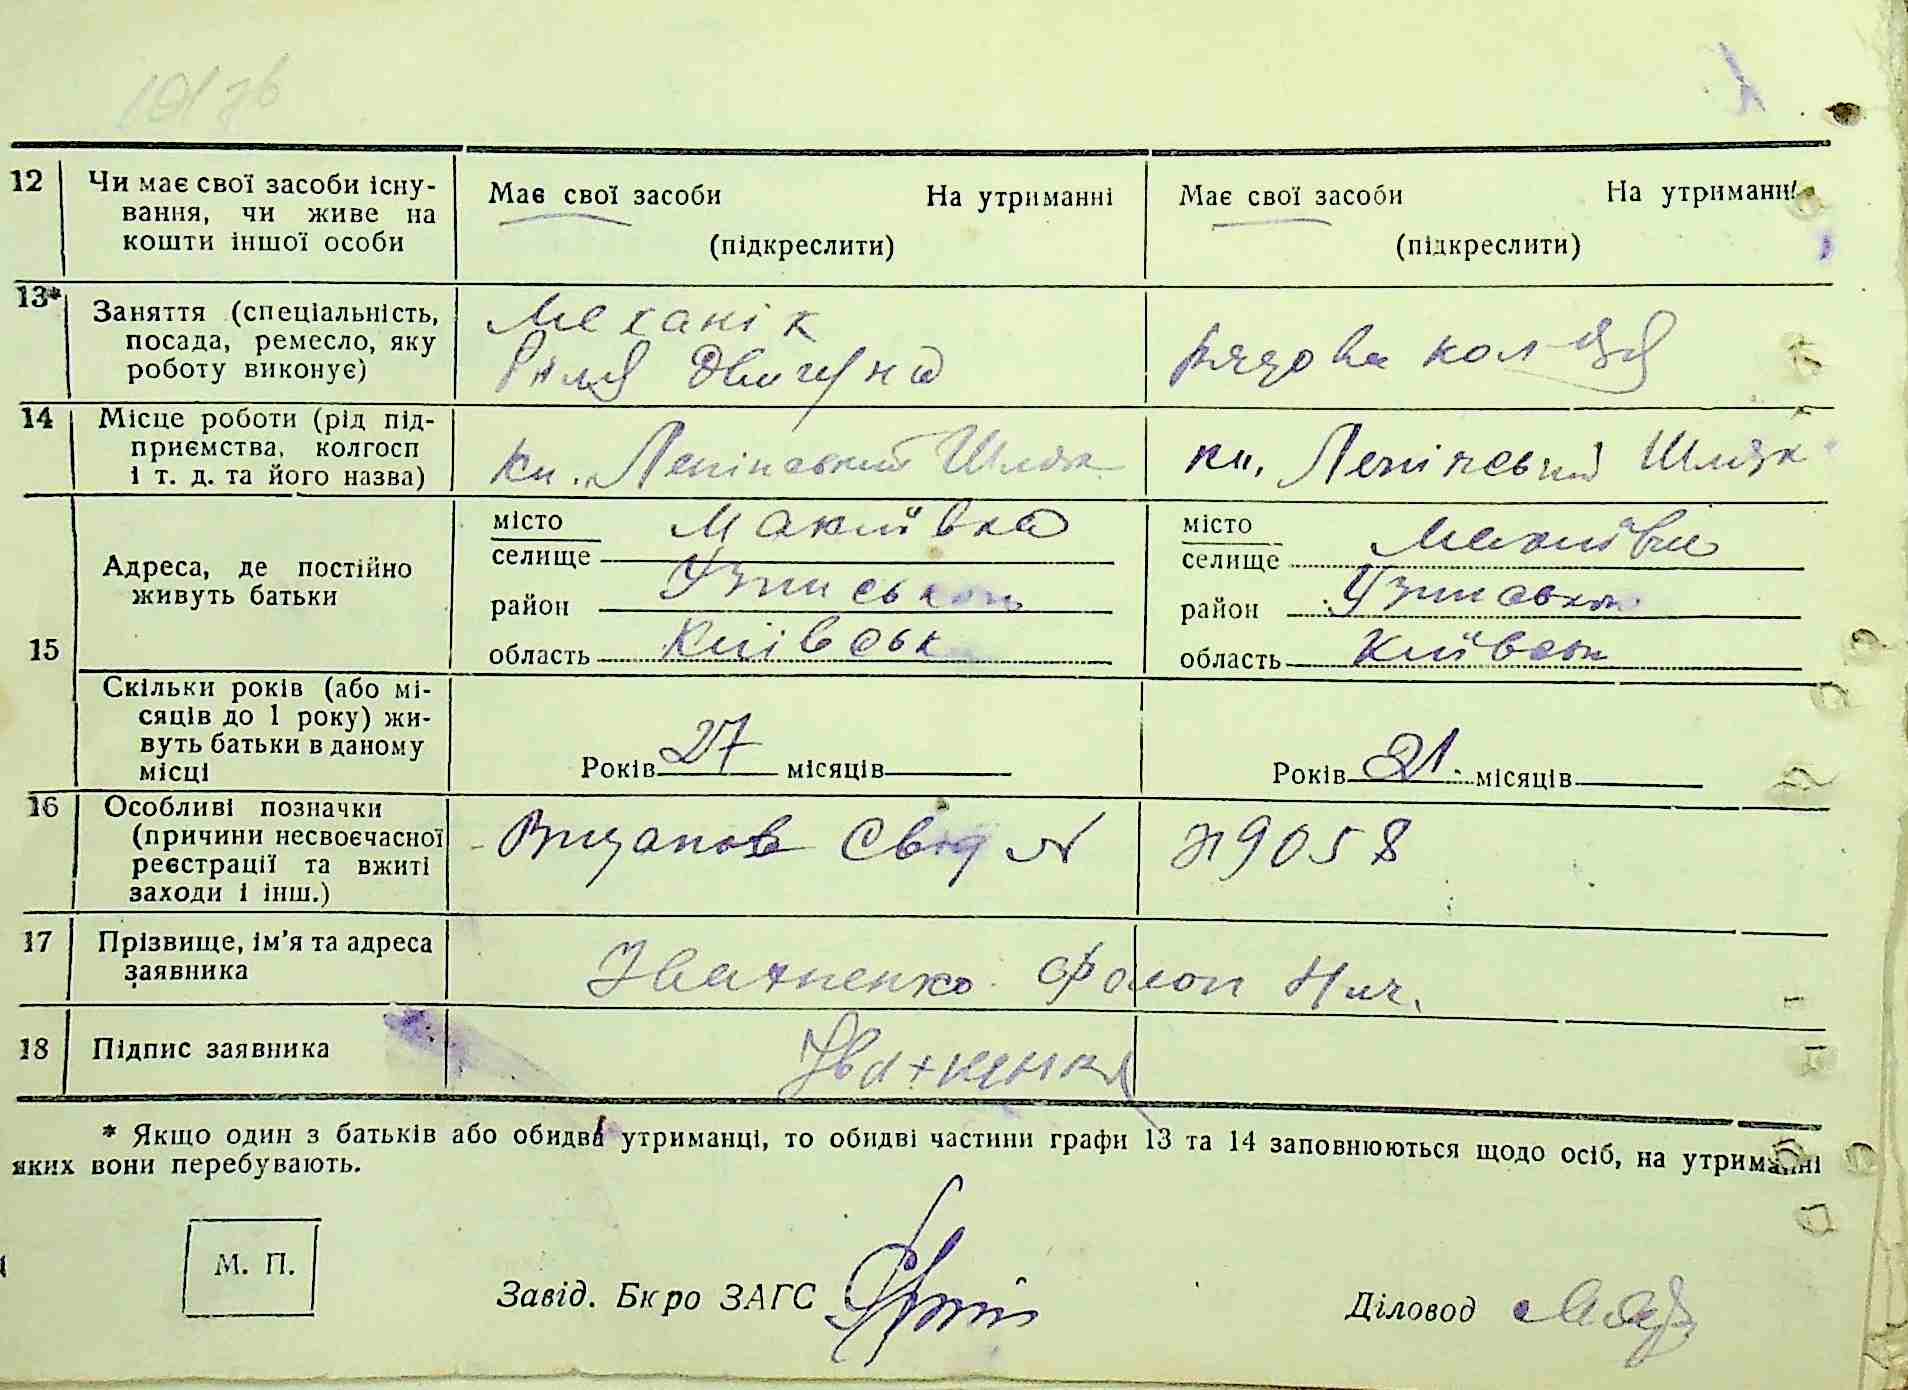 12 Чи має свої засоби існу-
вання, чи живе на
кошти іншої особи
Має свої засоби На утриманні
(підкреслити)
Має свої засоби На утриманні
(підкреслити)
13* Заняття (спеціальність,
посада, ремесло, яку
роботу виконує)
Механік
біля двигуна
рядова кол-ця
14 Місце роботи (рід під-
приємства, колгосп
і т. д. та його назва)
кл. Ленінський Шлях
кл. Ленінський Шлях
15 Адреса, де постійно
живуть батьки
місто
селище Макіївка
район Узинськ
область Київськ
місто
селище Макіївка
район Узинськ
область Київськ
Скільки років (або мі-
сяців до 1 року) жи-
вуть батьки в даному
місці
Років 27 місяців
Років 21 місяців
16 Особливі позначки
(причини несвоєчасної
реєстрації та вжиті
заходи і інш.)
Свід № 9058
17 Прізвище, ім'я та адреса
заявника
Іватненко
18 Підпис заявника
Іватненко
* Якщо один з батьків або обидва утриманці, то обидві частини графи 13 та 14 заповнюються щодо осіб, на утриманні
яких вони перебувають.
М. П.
Завід. Бюро ЗАГС
Діловод